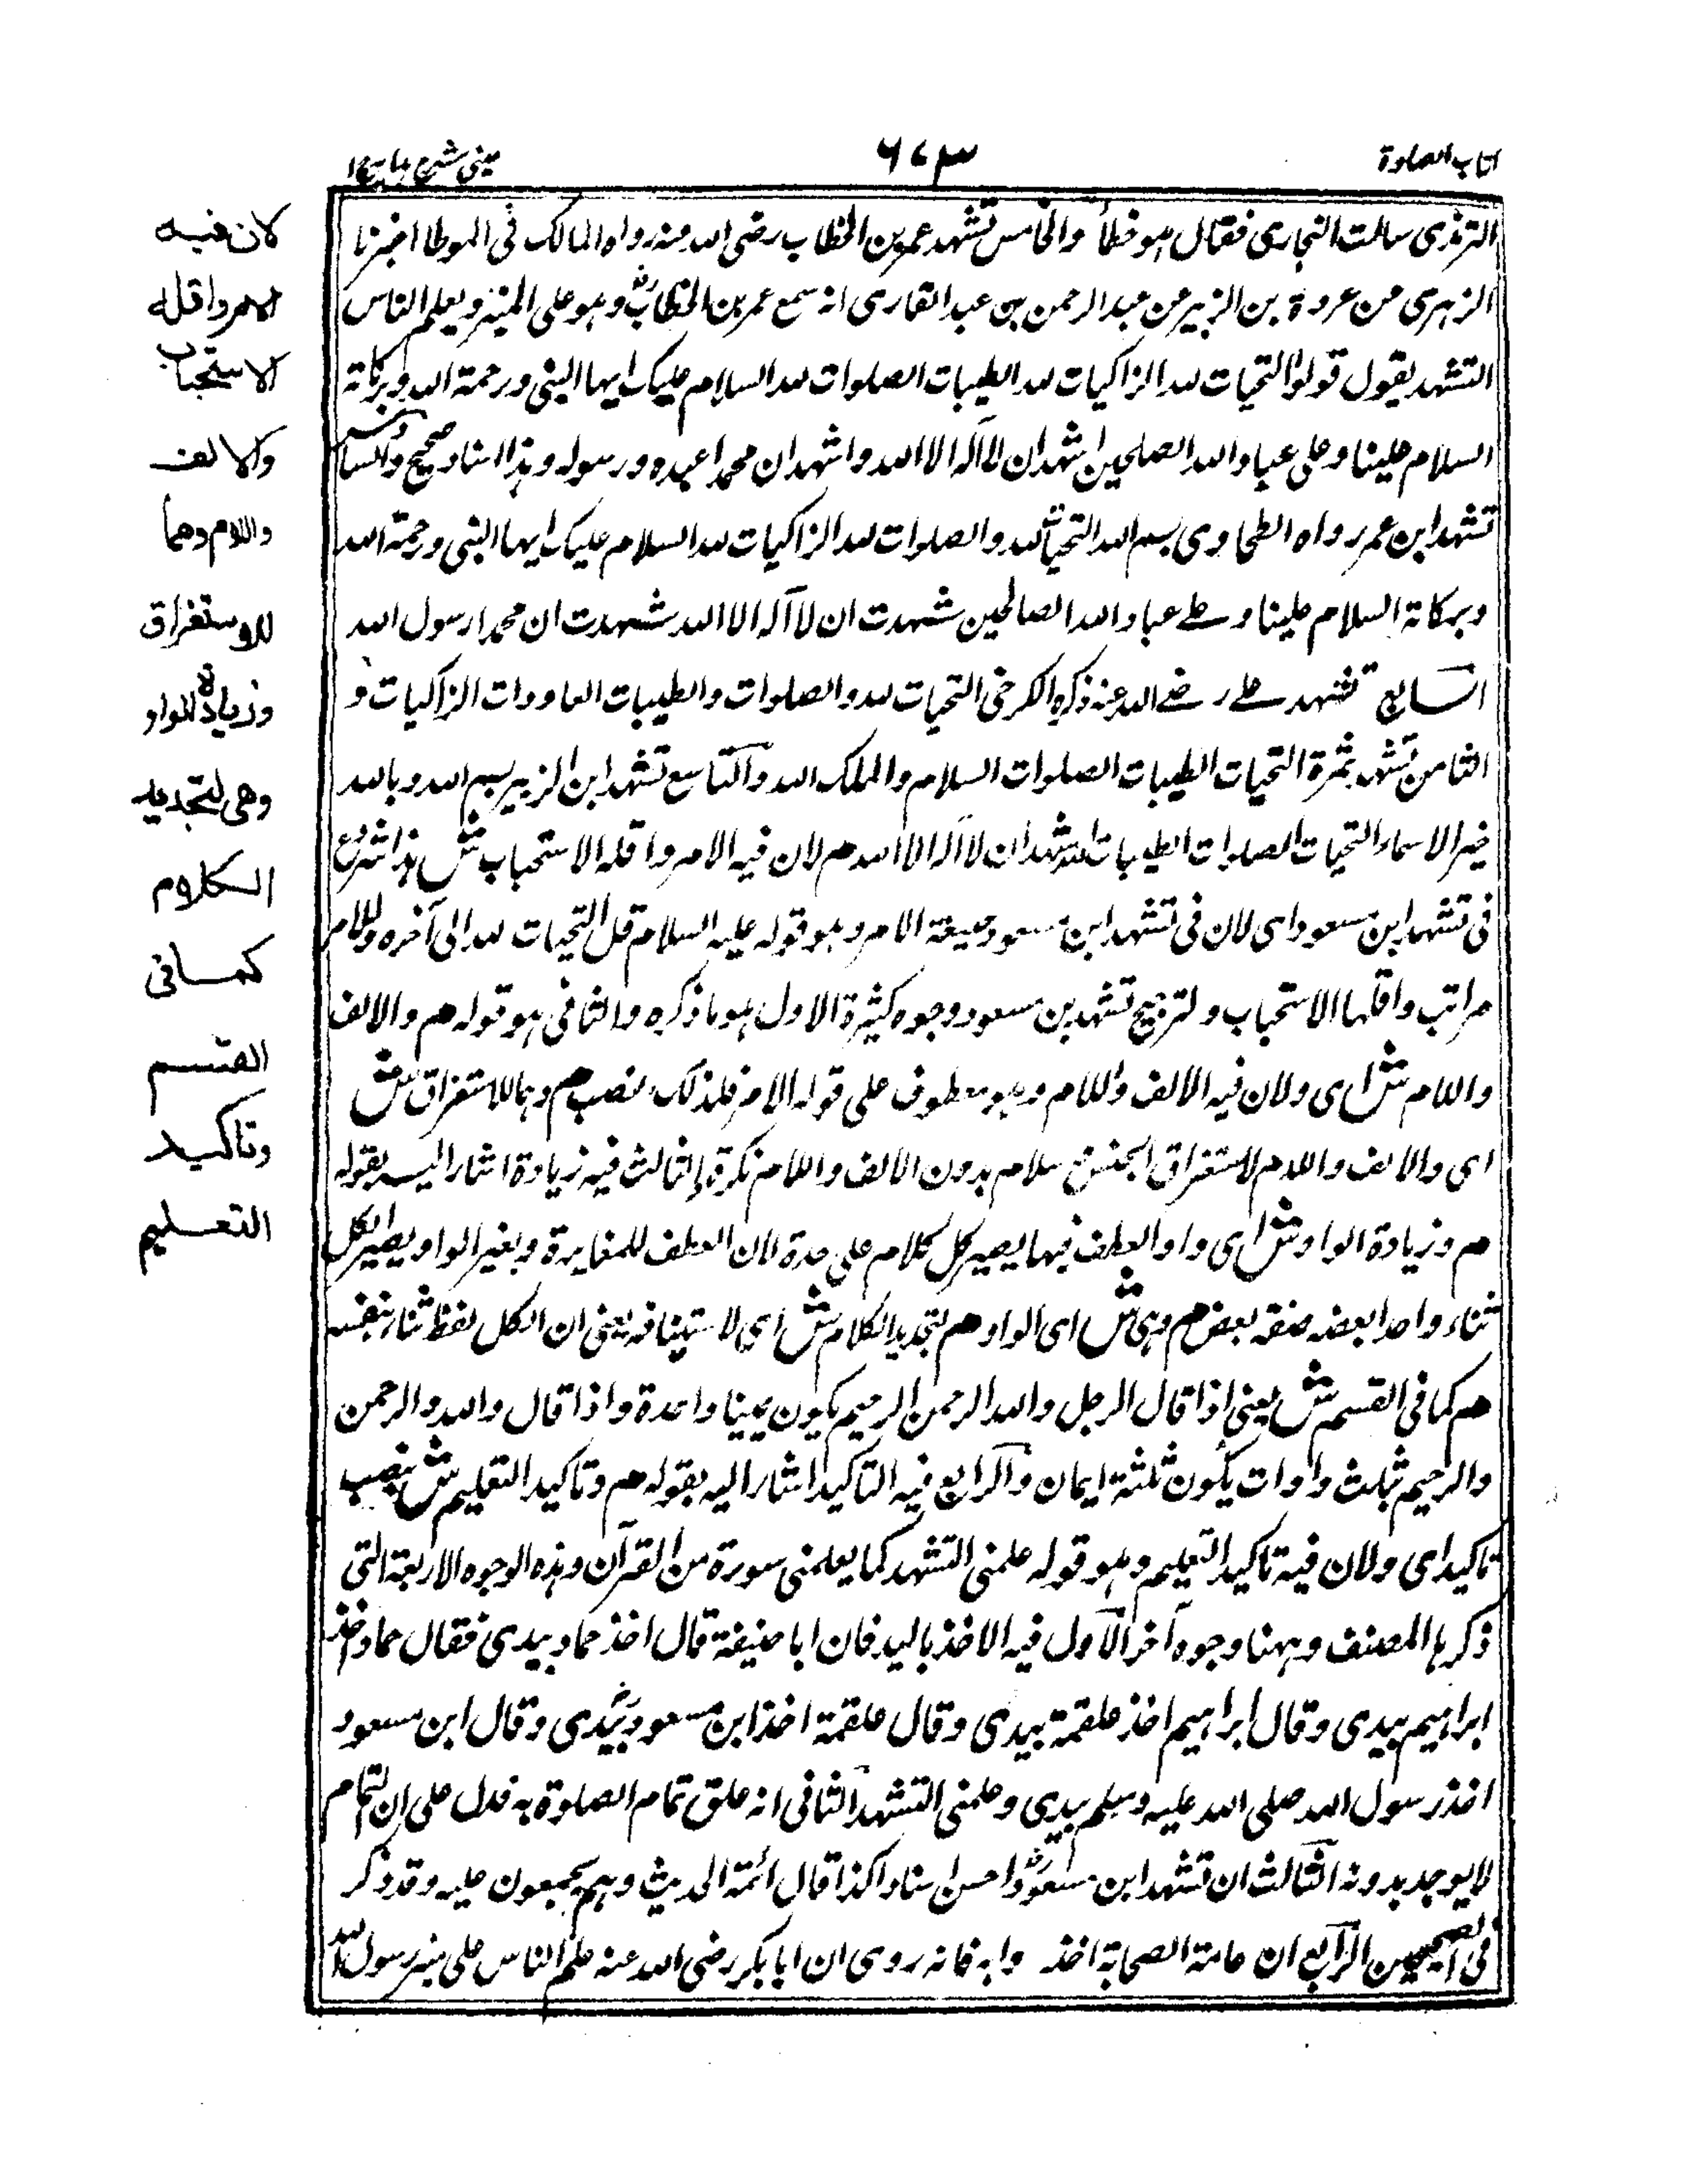 كتاب الصلوة
٦٧٣
عينى شرح هداية ج ا
الترمذى سالت البخارى فقال هو خطأ والخامس تشهد عمر بن الخطاب رضى الله عنه رواه المالك فى الموطا اخبرنا
الزهرى عن عروة بن الزبير عن عبد الرحمن بن عبد القارى انه سمع عمر بن الخطاب وهو على المنبر ويعلم الناس
التشهد يقول قولوا التحيات لله الزاكيات لله الطيبات الصلوات لله السلام عليك ايها النبى ورحمة الله وبركاته
السلام علينا وعلى عباد الله الصلحين اشهد ان لا اله الا الله واشهد ان محمدا عبده ورسوله وهذا اسناد صحيح والسادس
تشهد ابن عمر رواه الطحاوى بسم الله التحيات لله والصلوات لله الزاكيات لله السلام عليك ايها النبى ورحمة الله
وبركاته السلام علينا وعلے عباد الله الصالحين شهدت ان لا اله الا الله شهدت ان محمدا رسول الله
السابع تشهد علے رضے الله عنه ذكره الكرخى التحيات لله والصلوات والطيبات الغاودات الزاكيات و
الثامن تشهد ثمرة التحيات الطيبات الصلوات السلام والملك الله والتاسع تشهد ابن الزبير بسم الله وبالله
خير الاسماء التحيات الصلوات الطيبات لله اشهد ان لا اله الا الله هم لان فيه الامر واقله الاستحباب ش هذا شروع
فى تشهد ابن مسعود اى لان فى تشهد ابن مسعود صيغة الامر وهو قوله عليه السلام قل التحيات لله الى آخره وللامر
مراتب واقلها الاستحباب ولترجيح تشهد بن مسعود وجوه كثيرة الاول هو ما ذكره والثانى هو قوله هم والالف
واللام ش اى ولان فيه الالف واللام وهو معطوف على قوله الامر فلذلك نصب هم وهما للاستغراق ش
اى والالف واللام لاستغراق الجنس وسلام بدون الالف واللام نكرة الثالث فيه زيادة اشار اليه بقوله
هم وزيادة الواو ش اى واو العطف فيها يصير كل كلام على حدة لان العطف للمغايرة وبغير الواو يصير الكل
ثناء واحدا بعضه صفة بعض هم وهى ش اى الواو هم لتجديد الكلام ش اى لاستينافه يعنى ان الكل لفظ ثناء بنفسه
هم كما فى القسم ش يعنى اذا قال الرجل والله الرحمن الرحيم يكون يمينا واحدة واذا قال والله والرحمن
والرحيم بثلث واوات يكون ثلثة ايمان والرابع فيه التاكيد اشار اليه بقوله هم وتاكيد التعليم ش بنصب
تاكيد اى ولان فيه تاكيد التعليم وهو قوله علمنى التشهد كما يعلمنى سورة من القرآن وهذه الوجوه الاربعة التى
ذكرها المصنف وههنا وجوه آخر الاول فيه الاخذ باليد فان ابا حنيفة قال اخذ حماد بيدى فقال حماد اخذ
ابراهيم بيدى وقال ابراهيم اخذ علقمة بيدى وقال علقمة اخذ ابن مسعود بيدى وقال ابن مسعود
اخذ رسول الله صلى الله عليه وسلم بيدى وعلمنى التشهد الثانى انه علق تمام الصلوة به فدل على ان التمام
لا يوجد بدونه الثالث ان تشهد ابن مسعود احسن اسنادا كذا قال ائمة الحديث وهم يجمعون عليه وقد ذكر
فى الصحيحين الرابع ان عامة الصحابة اخذوا به فانه روى ان ابا بكر رضى الله عنه علم الناس على منبر رسول الله
لان فيه
الامر واقله
الاستحباب
والالف
واللام وهما
للاستغراق
وزيادة الواو
وهى لتجديد
الكلام
كما فى
القسم
وتاكيد
التعليم